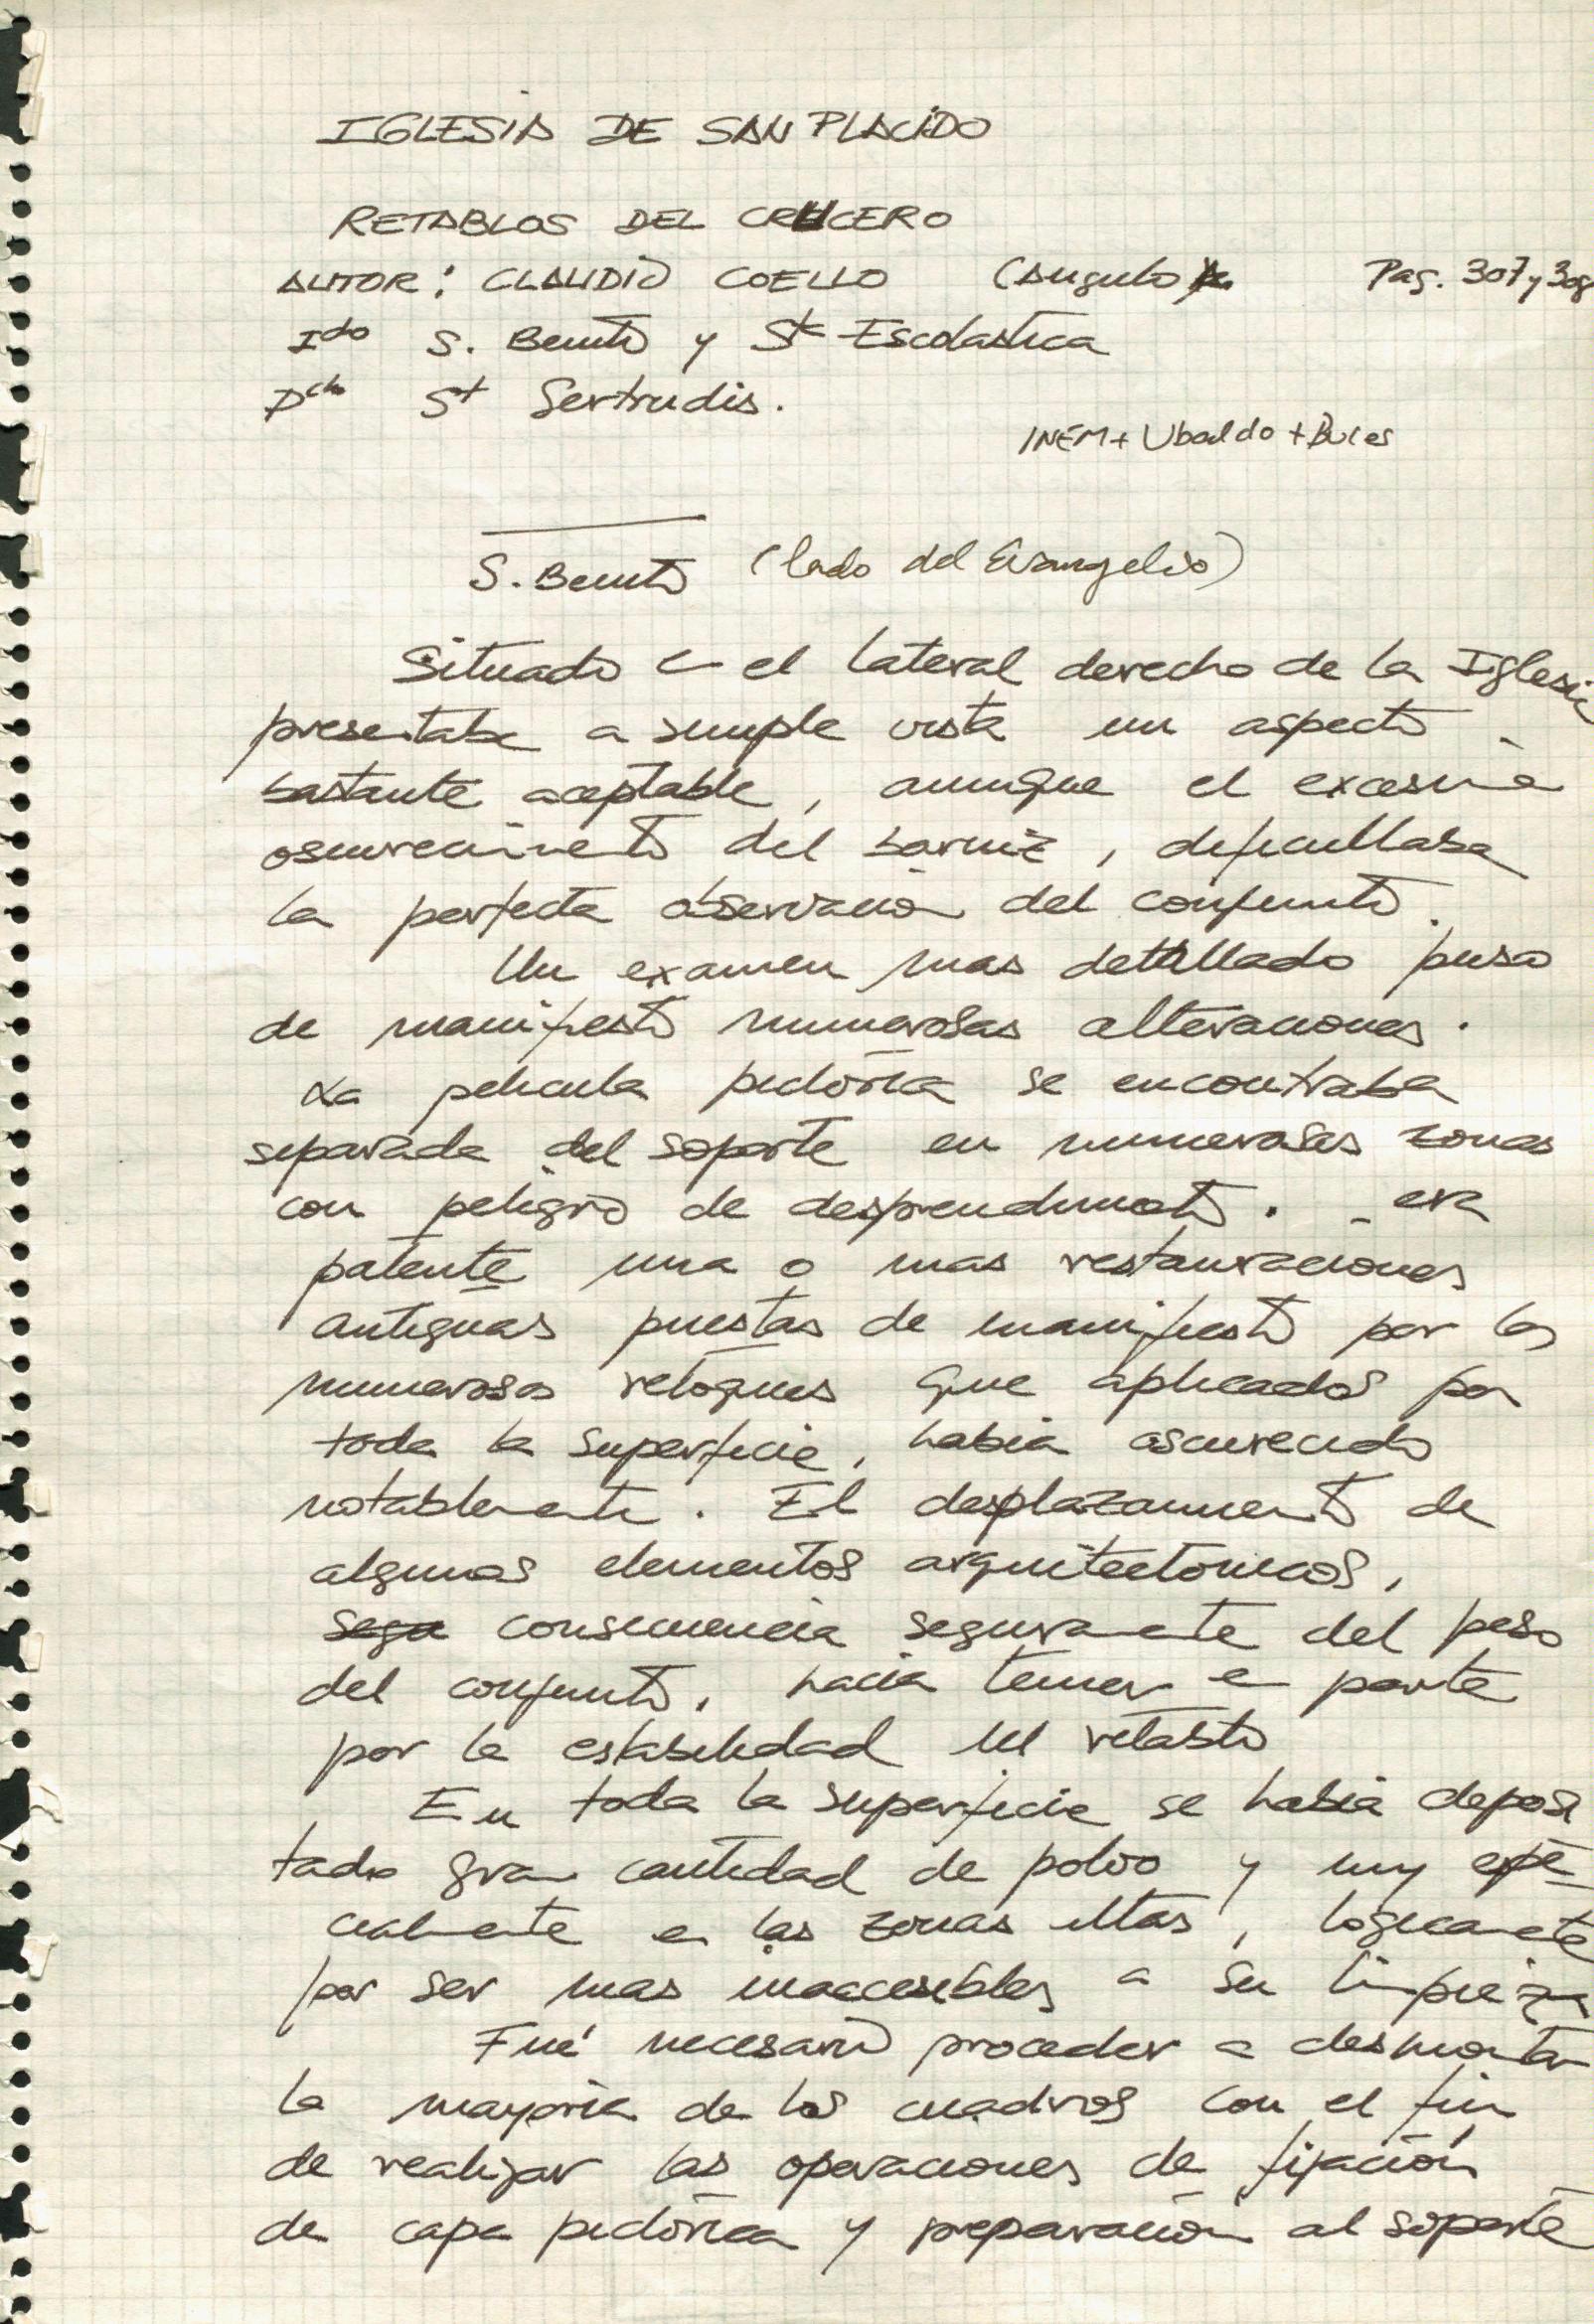 IGLESIA DE SAN PLACIDO
RETABLOS DEL CRUCERO
AUTOR: CLAUDIO COELLO (Angulo Pag. 307 y 308
Ido S. Benito y Sta Escolastica
Dcho St Gertrudis.
INEM + Ubaldo + Bules
S. Benito (lado del Evangelio)
Situado en el lateral derecho de la Iglesia
presentaba a simple vista un aspecto
bastante aceptable, aunque el excesivo
oscurecimiento del barniz, dificultaba
la perfecta observación del conjunto.
Un examen mas detallado puso
de manifiesto numerosas alteraciones.
La pelicula pictórica se encontraba
separada del soporte en numerosas zonas
con peligro de desprendimiento. era
patente una o mas restauraciones
antiguas puestas de manifiesto por los
numerosos retoques que aplicados por
toda la superficie, habia oscurecido
notablemente. El desplazamiento de
algunos elementos arquitectonicos,
consecuencia seguramente del peso
del conjunto, hacia temer en parte
por la estabilidad del retablo
En toda la superficie se habia deposi
tado gran cantidad de polvo y muy espe-
cialmente en las zonas altas, logicamente
por ser mas inaccesibles a su limpieza
Fué necesario proceder a desmontar
la mayoria de los cuadros con el fin
de realizar las operaciones de fijación
de capa pictórica y preparación al soporte